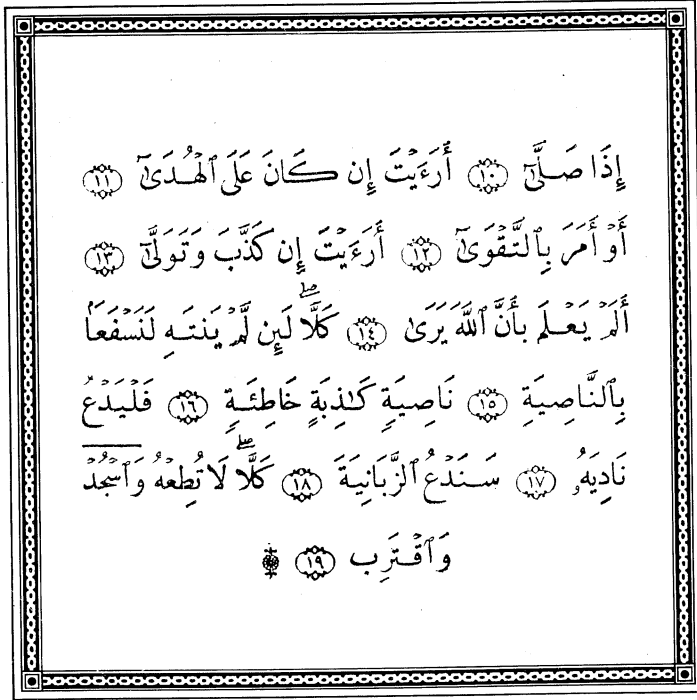 إِذَا صَلَّىٰٓ ١٠ أَرَءَيۡتَ إِن كَانَ عَلَى ٱلۡهُدَىٰٓ ١١
أَوۡ أَمَرَ بِٱلتَّقۡوَىٰٓ ١٢ أَرَءَيۡتَ إِن كَذَّبَ وَتَوَلَّىٰٓ ١٣
أَلَمۡ يَعۡلَم بِأَنَّ ٱللَّهَ يَرَىٰ ١٤ كَلَّاۖ لَئِن لَّمۡ يَنتَهِ لَنَسۡفَعَۢا
بِٱلنَّاصِيَةِ ١٥ نَاصِيَةٖ كَٰذِبَةٍ خَاطِئَةٖ ١٦ فَلۡيَدۡعُ
نَادِيَهُۥ ١٧ سَنَدۡعُ ٱلزَّبَانِيَةَ ١٨ كَلَّاۖ لَا تُطِعۡهُ وَٱسۡجُدۡۤ
وَٱقۡتَرِب ١٩ ۩